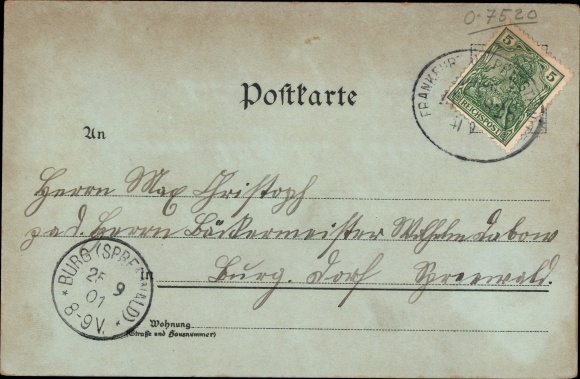 0.7520
5 5
REICHSPOST
FRANKFURT
Postkarte
An
Herrn Max Christoph
z. ad. Herrn Bäckermeister Wilhelm Dabow
in Burg. Dorf Spreewald.
* BURG (SPREEWALD) *
25 9
01
8-9V.
Wohnung
(Straße und Hausnummer)